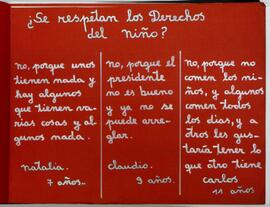 ¿Se respetan los Derechos
del niño?
no, porque unos
tienen nada y
hay algunos
que tienen va-
rias cosas y al-
gunos nada.
natalia.
7 años..
no, porque el
presidente
no es bueno
y ya no se
puede arre-
glar.
claudio.
9 años.
no, porque no
comen los ni-
ños, y algunos
comen todos
los días, y a
otros les gus-
taría tener lo
que otro tiene
carlos
11 años